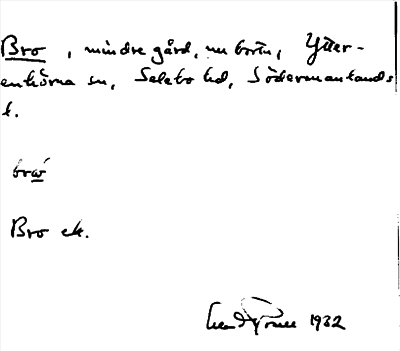 Bro, mindre gård, nu borta, Ytter-
enhörna sn, Selebo hd, Södermanlands
l.
brω̄́
Bro ek.
1932